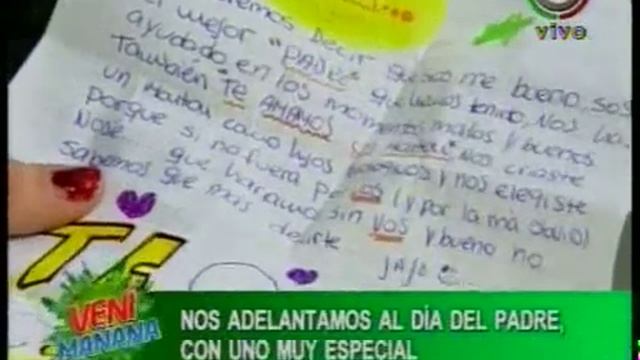 vivo
Decir que sos me bueno, sos
el mejor "PADRE" que hemos tenido, nos ha
ayudado en los momentos malos y buenos
También "TE AMAMOS nos criaste
un como hijos y nos elegiste
porque si no fuera por vos (y por la má
Nose que haramos sin vos y bueno no
sabemos que más decirte
jaja
TE
VENI
MAÑANA
NOS ADELANTAMOS AL DÍA DEL PADRE,
CON UNO MUY ESPECIAL